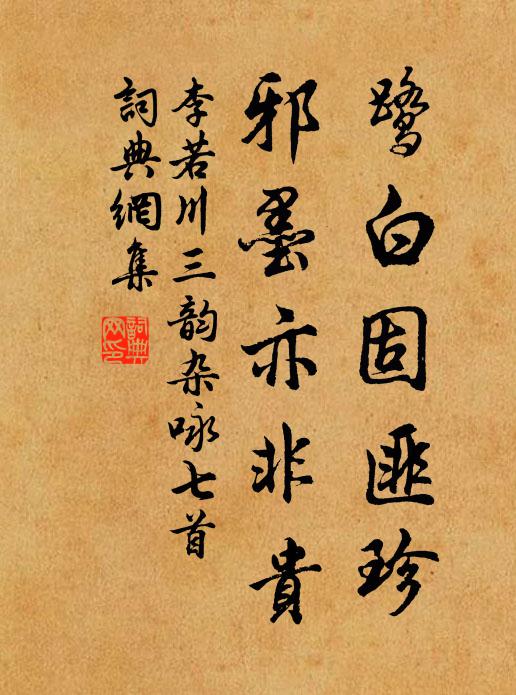 鹭白固匪珍
邪墨亦非貴
李若川三韵杂咏七首
詞典網集
詞典网印